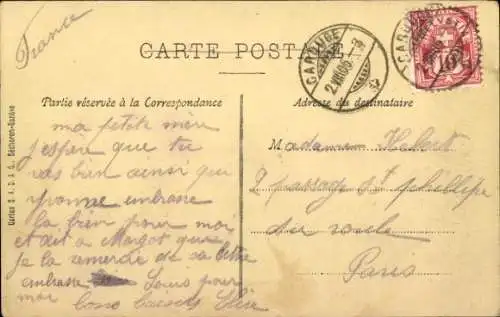 France
CARTE POSTALE
CAROUGE
2.VIII.09
10
Partie réservée à la Correspondance
Adresse du destinataire
ma petite mère
j'espère que tu
vas bien ainsi que
Yvonne embrasse
la bien pour moi
et dit a Margot que
je la remercie de sa lettre
embrasse Louis pour
moi
bons baisers
Madame Hebert
2 passage St philippe
du roule
Paris